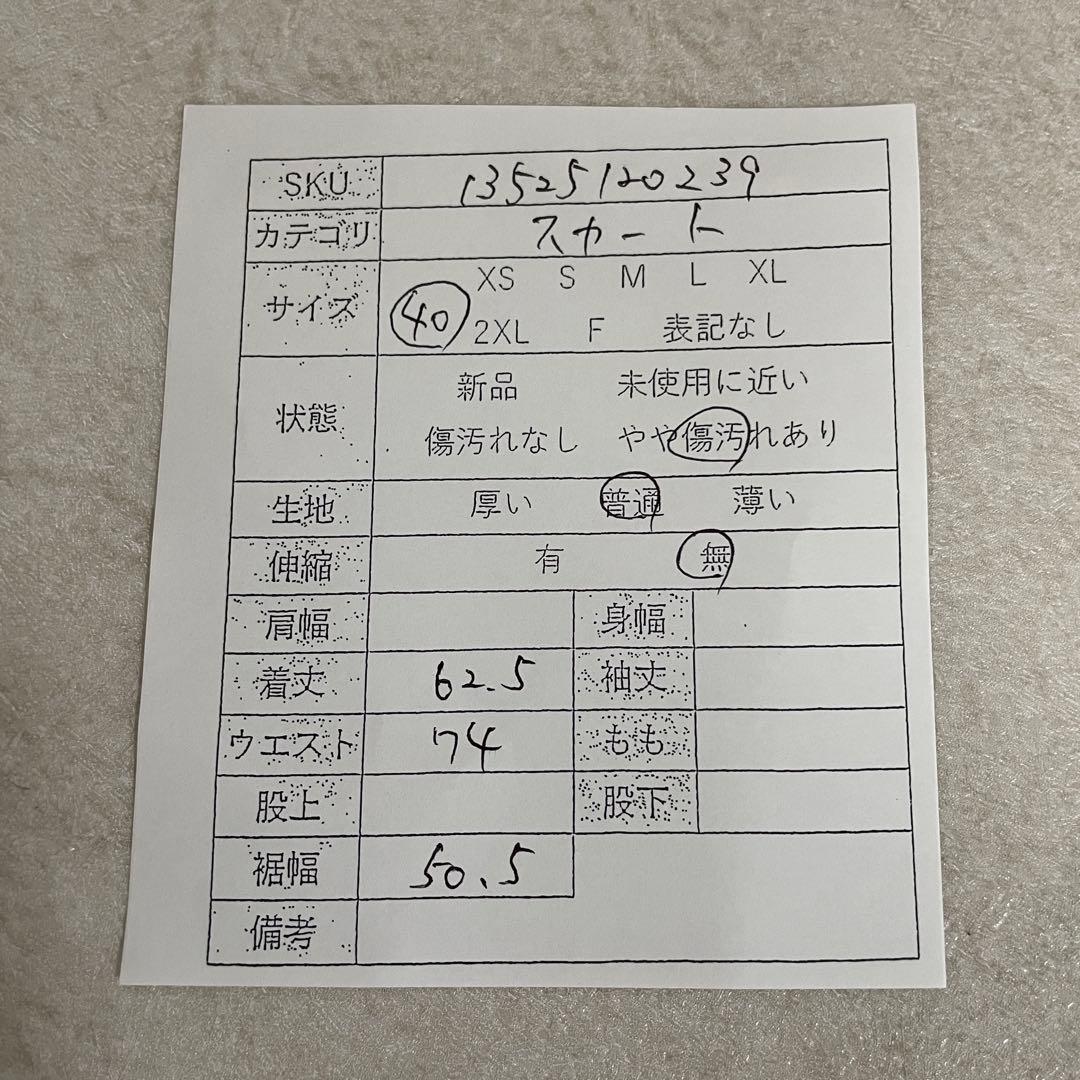 SKU 13525120239
カテゴリ スカート
サイズ XS S M L XL
40 2XL F 表記なし
状態 新品 未使用に近い
傷汚れなし やや傷汚れあり
生地 厚い 普通 薄い
伸縮 有 無
肩幅 身幅
着丈 62.5 袖丈
ウエスト 74 もも
股上 股下
裾幅 50.5
備考